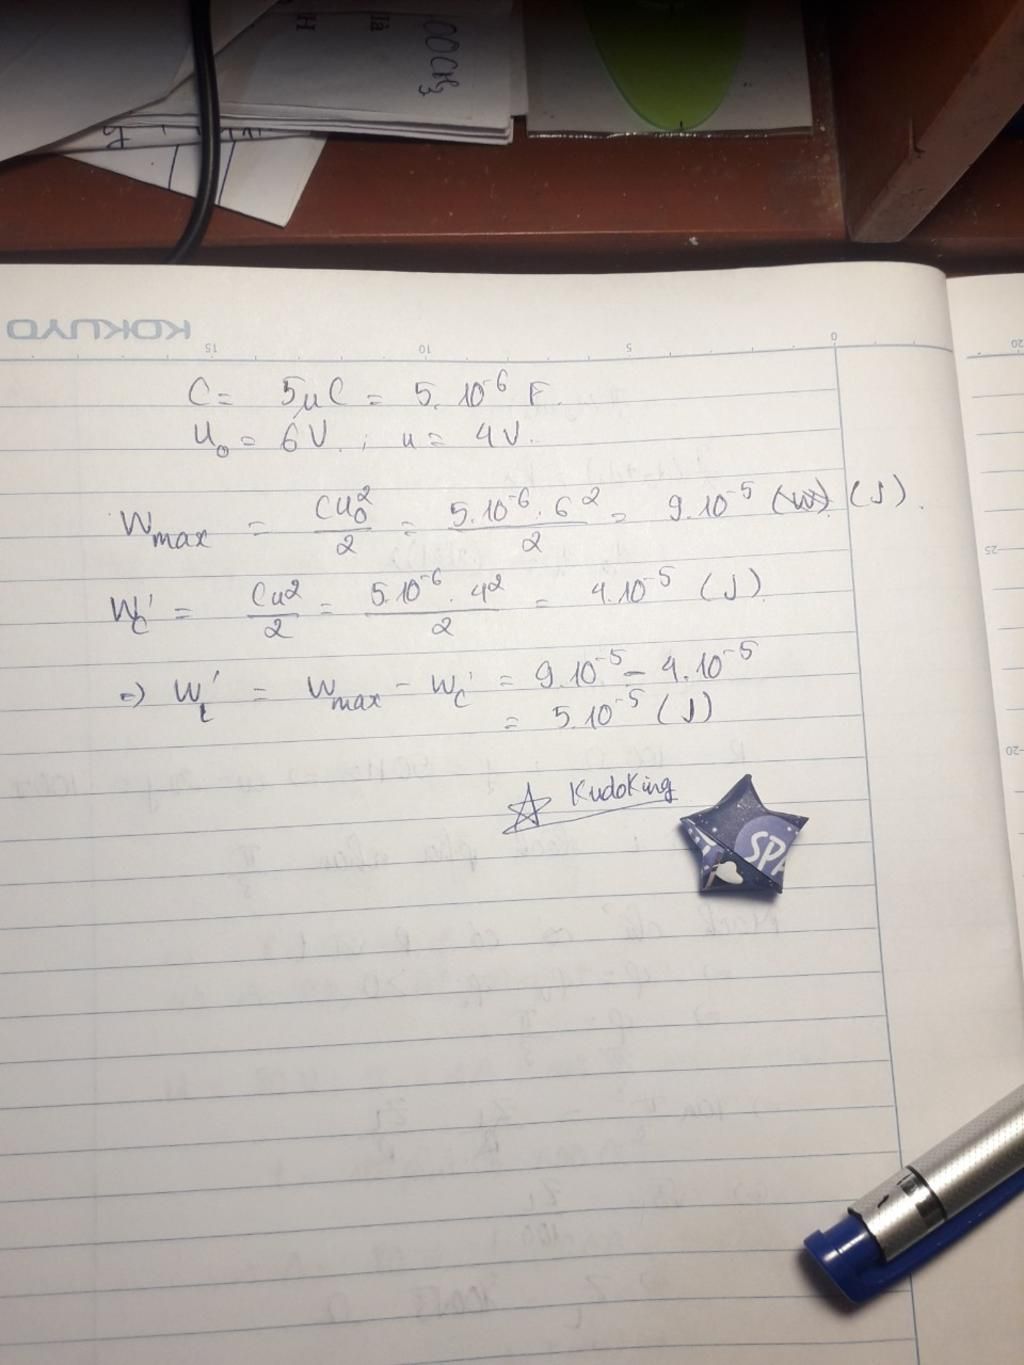 00CH3
là
H
KOKUYO
15 10 5 0
20
C = 5μC = 5.10⁻⁶ F.
U₀ = 6V ; u = 4V.
Wmax = CU₀²/2 = 5.10⁻⁶.6²/2 = 9.10⁻⁵ (J).
25
W'C = Cu²/2 = 5.10⁻⁶.4²/2 = 4.10⁻⁵ (J)
=) W'L = Wmax - W'C = 9.10⁻⁵ - 4.10⁻⁵
= 5.10⁻⁵ (J)
20
☆ KudoKing
SPA